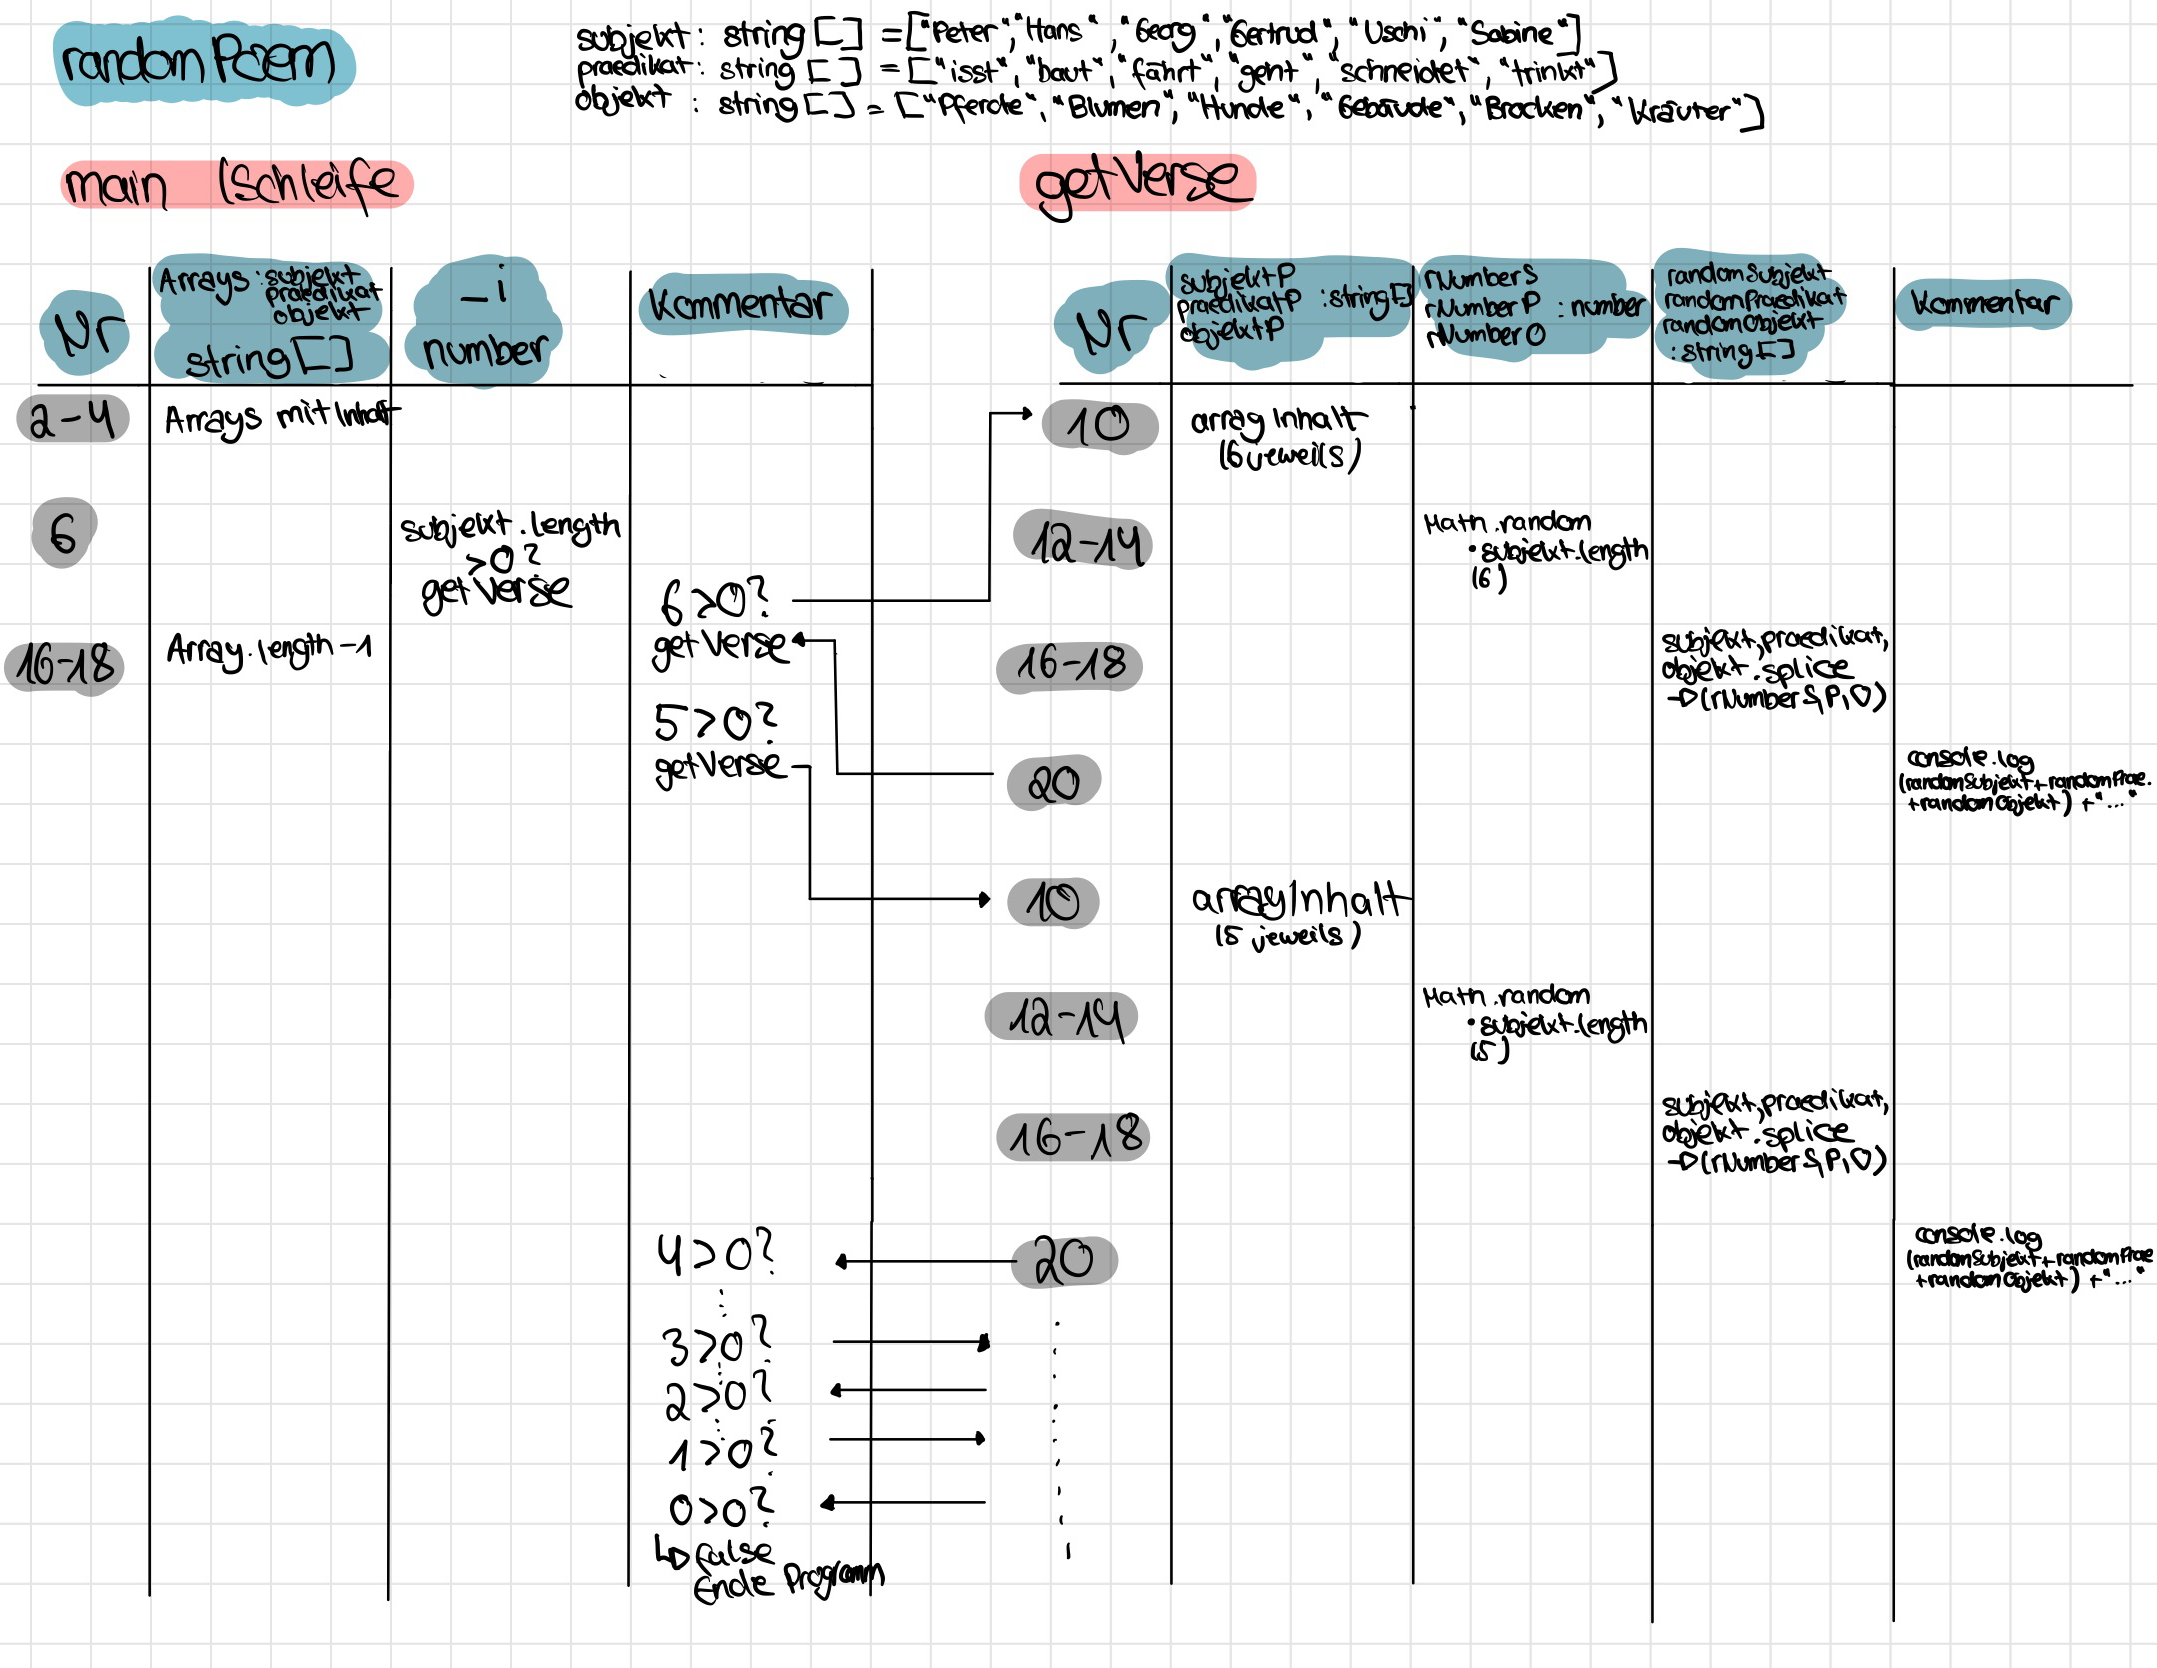 randomPoem
subjekt : string [ ] = ["Peter", "Hans", "Georg", "Gertrud", "Uschi", "Sabine"]
praedikat : string [ ] = ["isst", "baut", "fährt", "geht", "schneidet", "trinkt"]
objekt : string [ ] = ["Pferde", "Blumen", "Hunde", "Gebäude", "Brocken", "Kräuter"]
main (Schleife
Nr
Arrays : subjekt
praedikat
objekt
string [ ]
_i
number
Kommentar
2-4
Arrays mit Inhalt
6
subjekt.length
>0?
getVerse
6>0?
getVerse
16-18
Array.length-1
5>0?
getVerse
4>0?
3>0?
2>0?
1>0?
0>0?
↳ false
Ende Programm
getVerse
Nr
subjektP
praedikatP : string[]
objektP
rNumberS
rNumberP : number
rNumberO
randomSubjekt
randomPraedikat
randomObjekt
: string[]
Kommentar
10
array Inhalt
(6 jeweils)
12-14
Math.random
• subjekt.length
(6)
16-18
subjekt, praedikat,
objekt.splice
→ (rNumberS, P, O)
20
console.log
(randomSubjekt+randomPrae.
+randomObjekt) + "..."
10
array Inhalt
(5 jeweils)
12-14
Math.random
• subjekt.length
(5)
16-18
subjekt, praedikat,
objekt.splice
→ (rNumberS, P, O)
20
console.log
(randomSubjekt+randomPrae
+randomObjekt) + "..."